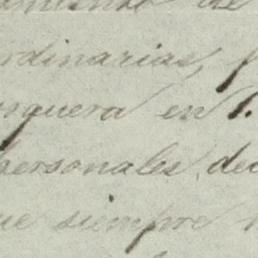 de
rdinarias, f
squera en 1.
personales de
ue siempre